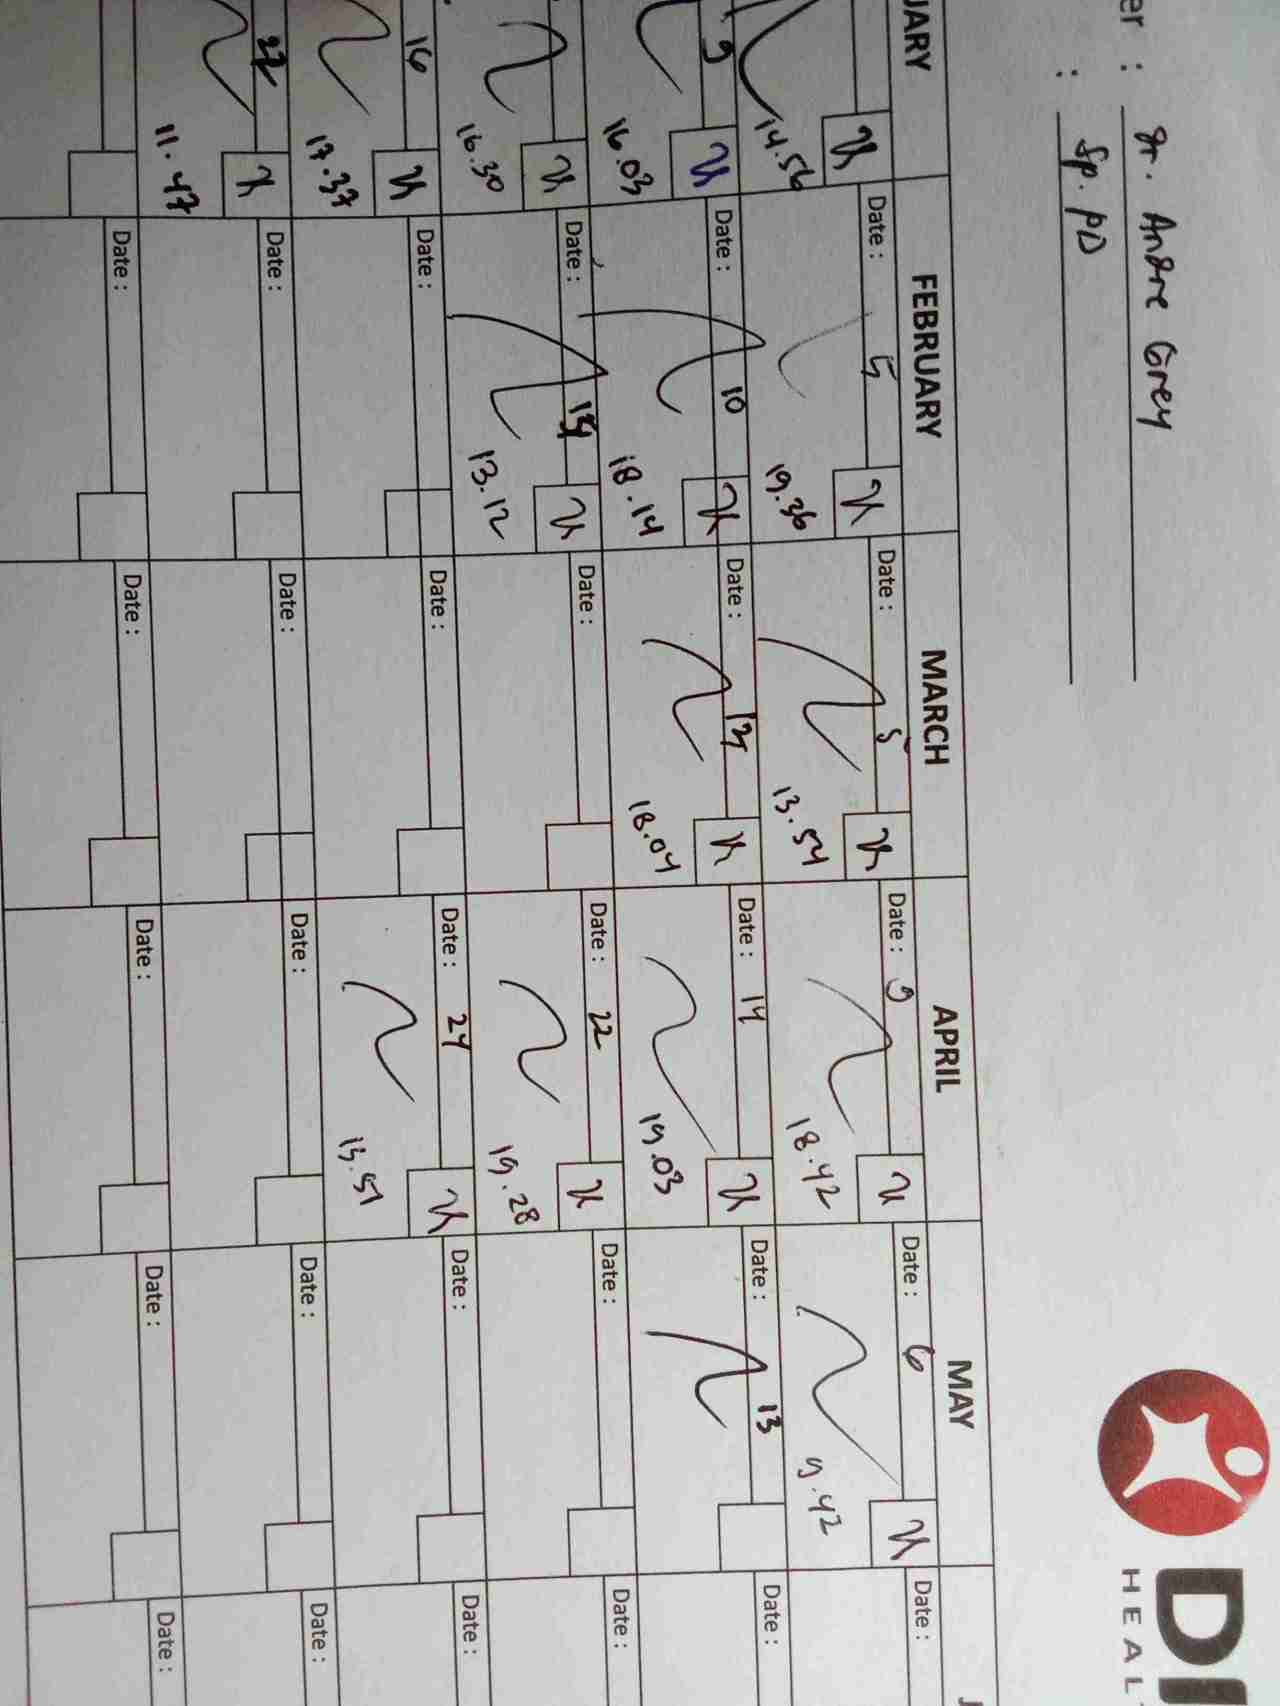 er : dr. Andre Grey
: Sp. PD
DI
HEAL
UARY FEBRUARY MARCH APRIL MAY J
Date : 5 Date : 5 Date : 9 Date : 6 Date :
14.56 19.36 13.54 18.42 9.42
9 Date : 10 Date : 13 Date : 14 Date : 13 Date :
16.03 18.14 18.04 19.03
Date : Date : Date : 22 Date : Date :
16.30 13.12 19.28
16 Date : Date : Date : 24 Date : Date :
17.37 15.51
Date : Date : Date : Date : Date :
11.47
Date : Date : Date : Date : Date :